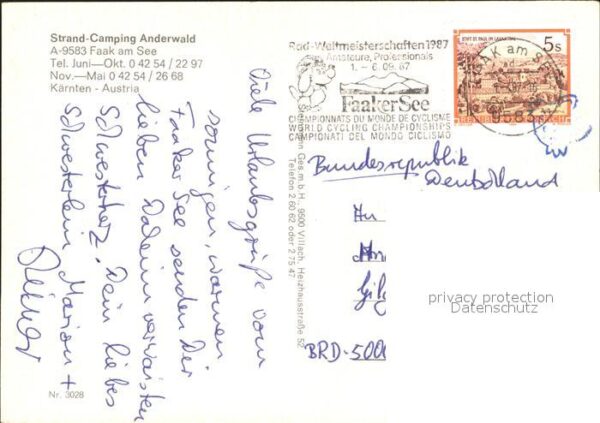 Strand-Camping Anderwald
A-9583 Faak am See
Tel. Juni—Okt. 0 42 54 / 22 97
Nov.—Mai 0 42 54 / 26 68
Kärnten - Austria
Viele Urlaubsgrüße vom
sonnigen, warmen
Faaker See senden Dir
lieben Daheim verwaisten
Schwesterherz, Dein liebes
Schwesterlein Marion +
Nr. 3028
Ges.m.b.H., 9500 Villach, Heizhausstraße 52
Telefon 2 60 62 oder 2 75 47
Rad-Weltmeisterschaften 1987
Amateure, Professionals
1. - 6. 09. 87
Faaker See
CHAMPIONNATS DU MONDE DE CYCLISME
WORLD CYCLING CHAMPIONSHIPS
CAMPIONATI DEL MONDO CICLISMO
STIFT ST. PAUL IM LAVANTTAL
5s
FAAK am SEE
9583
Bundesrepublik
Deutschland
BRD-500
privacy protection
Datenschutz